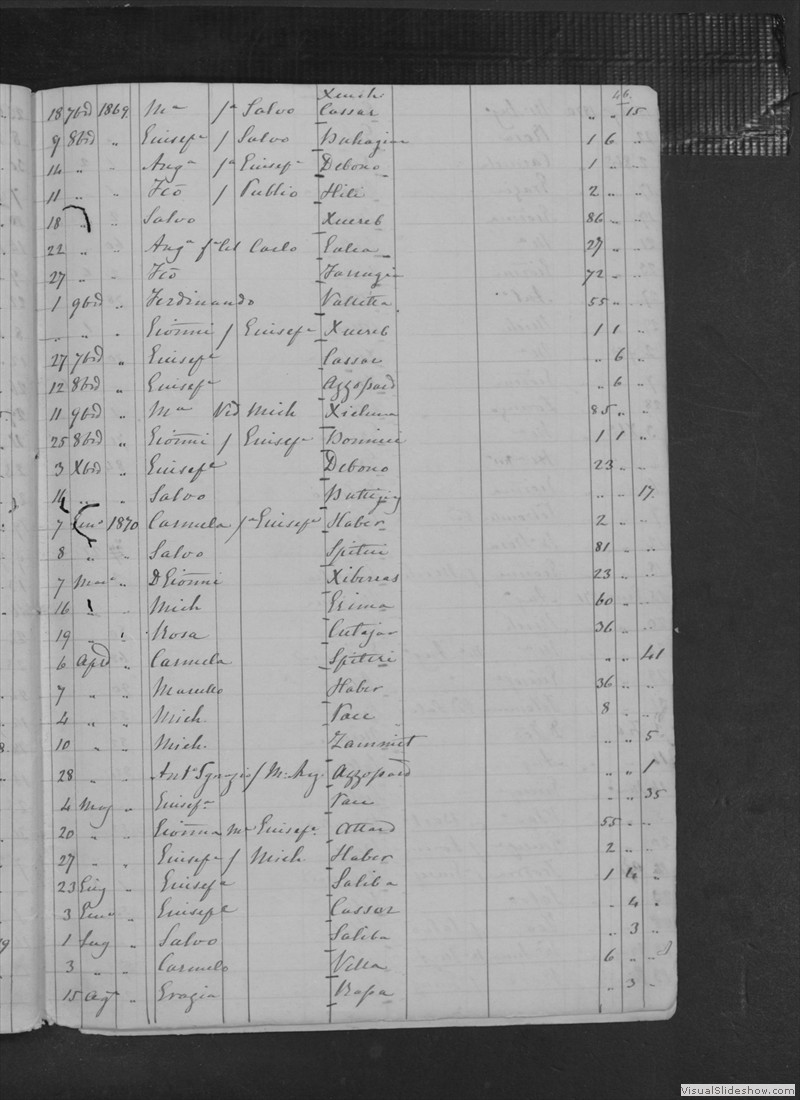 46
18 7brẽ 1869 Mª fª Salvo Cassar „ „ 15
9 8brẽ „ Giusepᵉ f Salvo Buhagiar 1 6 „
14 „ „ Angª fª Giusepᵉ Debono 1 „ „
11 „ „ Fcõ f Publio Hili 2 „ „
18 „ „ Salvo Xuereb 86 „ „
22 „ „ Angª fª del Carlo Galea 27 „ „
27 „ „ Fcõ Farrugia 72 „ „
1 9brẽ „ Ferdinando Valletta 55 „ „
„ „ „ Gioñni f Giusepᵉ Xuereb 1 1 „
27 7brẽ „ Giusepᵉ Cassar „ 6 „
12 8brẽ „ Giusepᵉ Azzopard „ 6 „
11 9brẽ „ Mª Vid Mich Xicluna 85 „ „
25 8brẽ „ Gioñni f Giusepᵉ Bonnici 1 1 „
3 Xbrẽ „ Giusepᵉ Debono 23 „ „
14 „ „ Salvo Buttigieg „ „ 17
7 1870 Carmela fª Giusepᵉ Haber 2 „ „
8 „ „ Salvo Spiteri 81 „ „
7 „ D Gioñni Xiberras 23 „ „
16 „ „ Mich Grima 60 „ „
19 „ „ Rosa Cutajar 36 „ „
6 Aprẽ „ Carmela Spiteri „ „ 41
7 „ „ Marcello Haber 36 „ „
4 „ „ Mich Pace 8 „ „
10 „ „ Mich Zammit „ „ 5
28 „ „ Antª Ignazio f Mª Ang Azzopard „ „ 1
4 Mag „ Giusepᵉ Pace „ „ 35
20 „ „ Gioñna Mª Giusepᵉ Attard 55 „ „
27 „ „ Giusepᵉ f Mich Haber 2 „ „
23 Giug „ Giusepᵉ Saliba 1 4 „
3 „ Giusepᵉ Cassar „ 4 „
1 Lug „ Salvo Saliba „ 3 „
3 „ „ Carmelo Vella 6 „ „
15 Agᵗ „ Grazia Bajada „ 3 „
VisualSlideshow.com